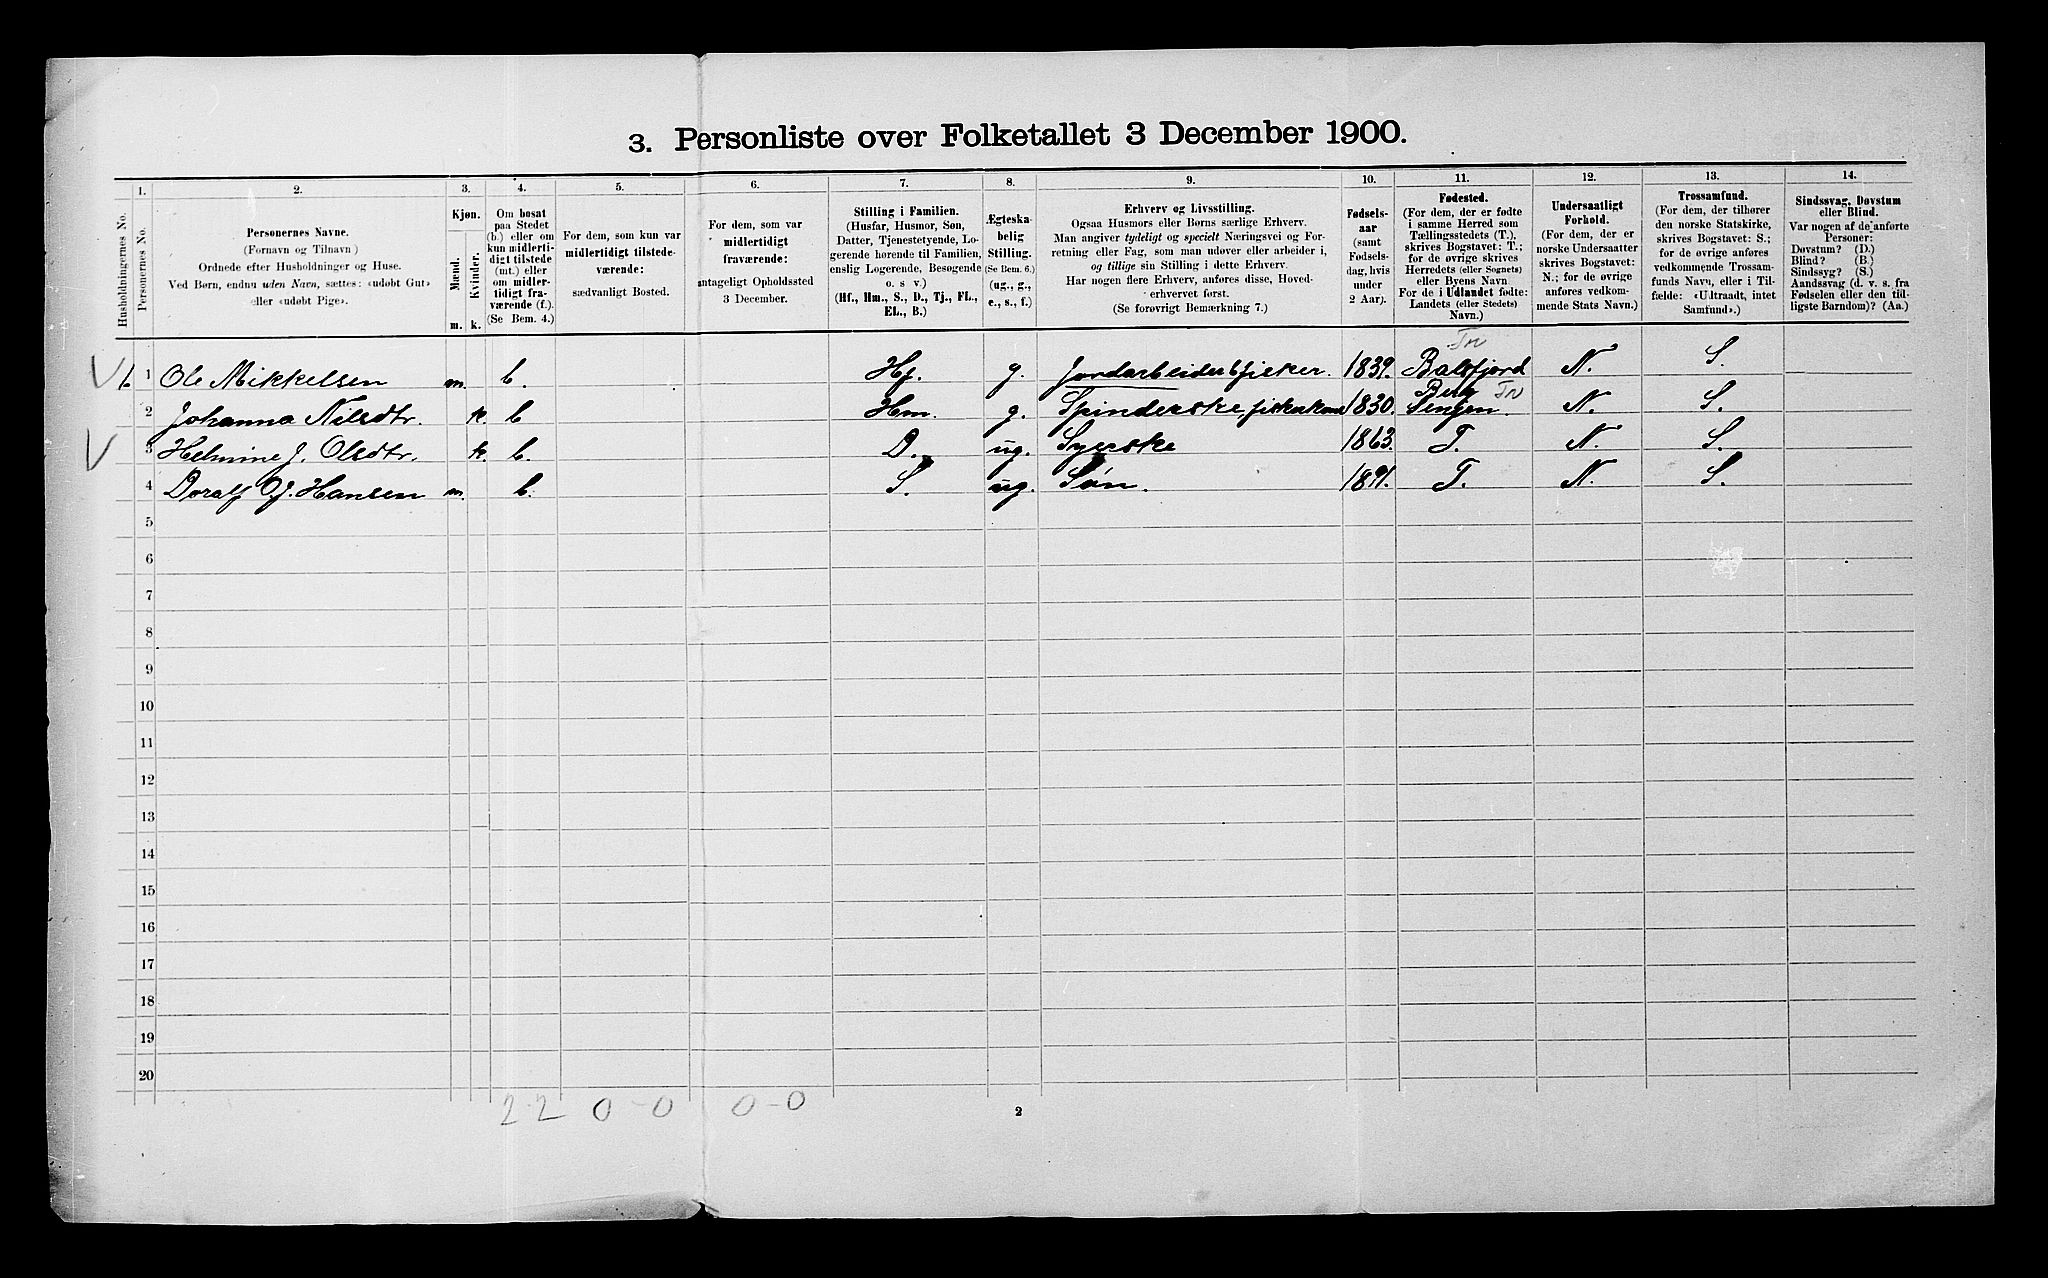 3. Personliste over Folketallet 3 December 1900.
1. 2. 3. 4. 5. 6. 7. 8. 9. 10. 11. 12. 13. 14.
Husholdningernes No.
Personernes No.
Personernes Navne.
(Fornavn og Tilnavn)
Ordnede efter Husholdninger og Huse.
Ved Børn, endnu uden Navn, sættes: «udøbt Gut»
eller «udøbt Pige».
Kjøn.
Mænd.
Kvinder.
m. k.
Om bosat
paa Stedet
(b.) eller om
kun midlerti-
digt tilstede
(mt.) eller
om midler-
tidigt fra-
værende (f.).
(Se Bem. 4.)
For dem, som kun var
midlertidigt tilstede-
værende:
sædvanligt Bosted.
For dem, som var
midlertidigt
fraværende:
antageligt Opholdssted
3 December.
Stilling i Familien.
(Husfar, Husmor, Søn,
Datter, Tjenestetyende, Lo-
gerende hørende til Familien,
enslig Logerende, Besøgende
o. s v.)
(Hf., Hm., S., D., Tj., FL.,
EL., B.)
Ægteska-
belig
Stilling.
(Se Bem. 6.)
(ug., g.,
e., s., f.)
Erhverv og Livsstilling.
Ogsaa Husmors eller Børns særlige Erhverv.
Man angiver tydeligt og specielt Næringsvei og For-
retning eller Fag, som man udøver eller arbeider i,
og tillige sin Stilling i dette Erhverv.
Har nogen flere Erhverv, anføres disse, Hoved-
erhvervet først.
(Se forøvrigt Bemærkning 7.)
Fødsels-
aar
(samt
Fødsels-
dag, hvis
under
2 Aar).
Fødested.
(For dem, der er fødte
i samme Herred som
Tællingsstedets (T.),
skrives Bogstavet: T.;
for de øvrige skrives
Herredets (eller Sognets)
eller Byens Navn.
For de i Udlandet fødte:
Landets (eller Stedets)
Navn.)
Undersaatligt
Forhold.
(For dem, der er
norske Undersaatter
skrives Bogstavet:
N.; for de øvrige
anføres vedkom-
mende Stats Navn.)
Trossamfund.
(For dem, der tilhører
den norske Statskirke,
skrives Bogstavet: S.;
for de øvrige anføres
vedkommende Trossam-
funds Navn, eller i Til-
fælde: «Udtraadt, intet
Samfund».)
Sindssvag, Døvstum
eller Blind.
Var nogen af de anførte
Personer:
Døvstum? (D.)
Blind? (B.)
Sindssyg? (S.)
Aandssvag (d. v. s. fra
Fødselen eller den tid-
ligste Barndom)? (Aa.)
Tr
1 Ole Mikkelsen m. b. Hf. g. Jordarbeider & fisker. 1839. Balsfjord N. S.
Berg Tr
2 Johanna Nilsdtr. k. b Hm. g. Spinderske, fiskerkone 1830. Senjen. N. S.
3 Helmine J. Olsdtr. k. b. D. ug. Syerske 1863. T. N. S.
4 Doralf O. J. Hansen m. b. S. ug. Søn. 1891. T. N. S.
5
6
7
8
9
10
11
12
13
14
15
16
17
18
19
20
2 2 0-0 0-0
2